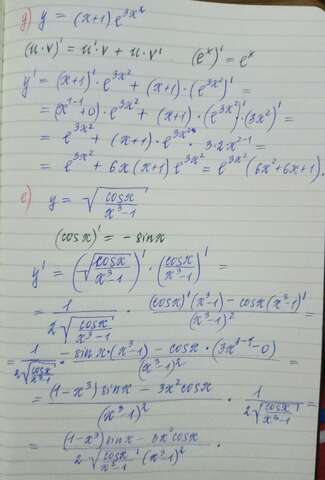 g) y = (x+1) e^{3x²}
(u·v)' = u'·v + u·v'   (eˣ)' = eˣ
y' = (x+1)'·e^{3x²} + (x+1)·(e^{3x²})' =
= (x^{1-1}+0)·e^{3x²} + (x+1)·(e^{3x²})'·(3x²)' =
= e^{3x²} + (x+1)·e^{3x²}·3·2x^{2-1} =
= e^{3x²} + 6x(x+1)e^{3x²} = e^{3x²}(6x²+6x+1).
e) y = √(cosx/(x³-1))
(cosx)' = -sinx
y' = (√(cosx/(x³-1)))'·(cosx/(x³-1))' =
= 1/(2√(cosx/(x³-1))) · ((cosx)'(x³-1) - cosx(x³-1)')/(x³-1)² =
= 1/(2√(cosx/(x³-1))) · (-sinx·(x³-1) - cosx·(3x^{3-1}-0))/(x³-1)² =
= ((1-x³)sinx - 3x²cosx)/(x³-1)² · 1/(2√(cosx/(x³-1))) =
= ((1-x³)sinx - 3x²cosx)/(2√(cosx/(x³-1)) (x³-1)²).